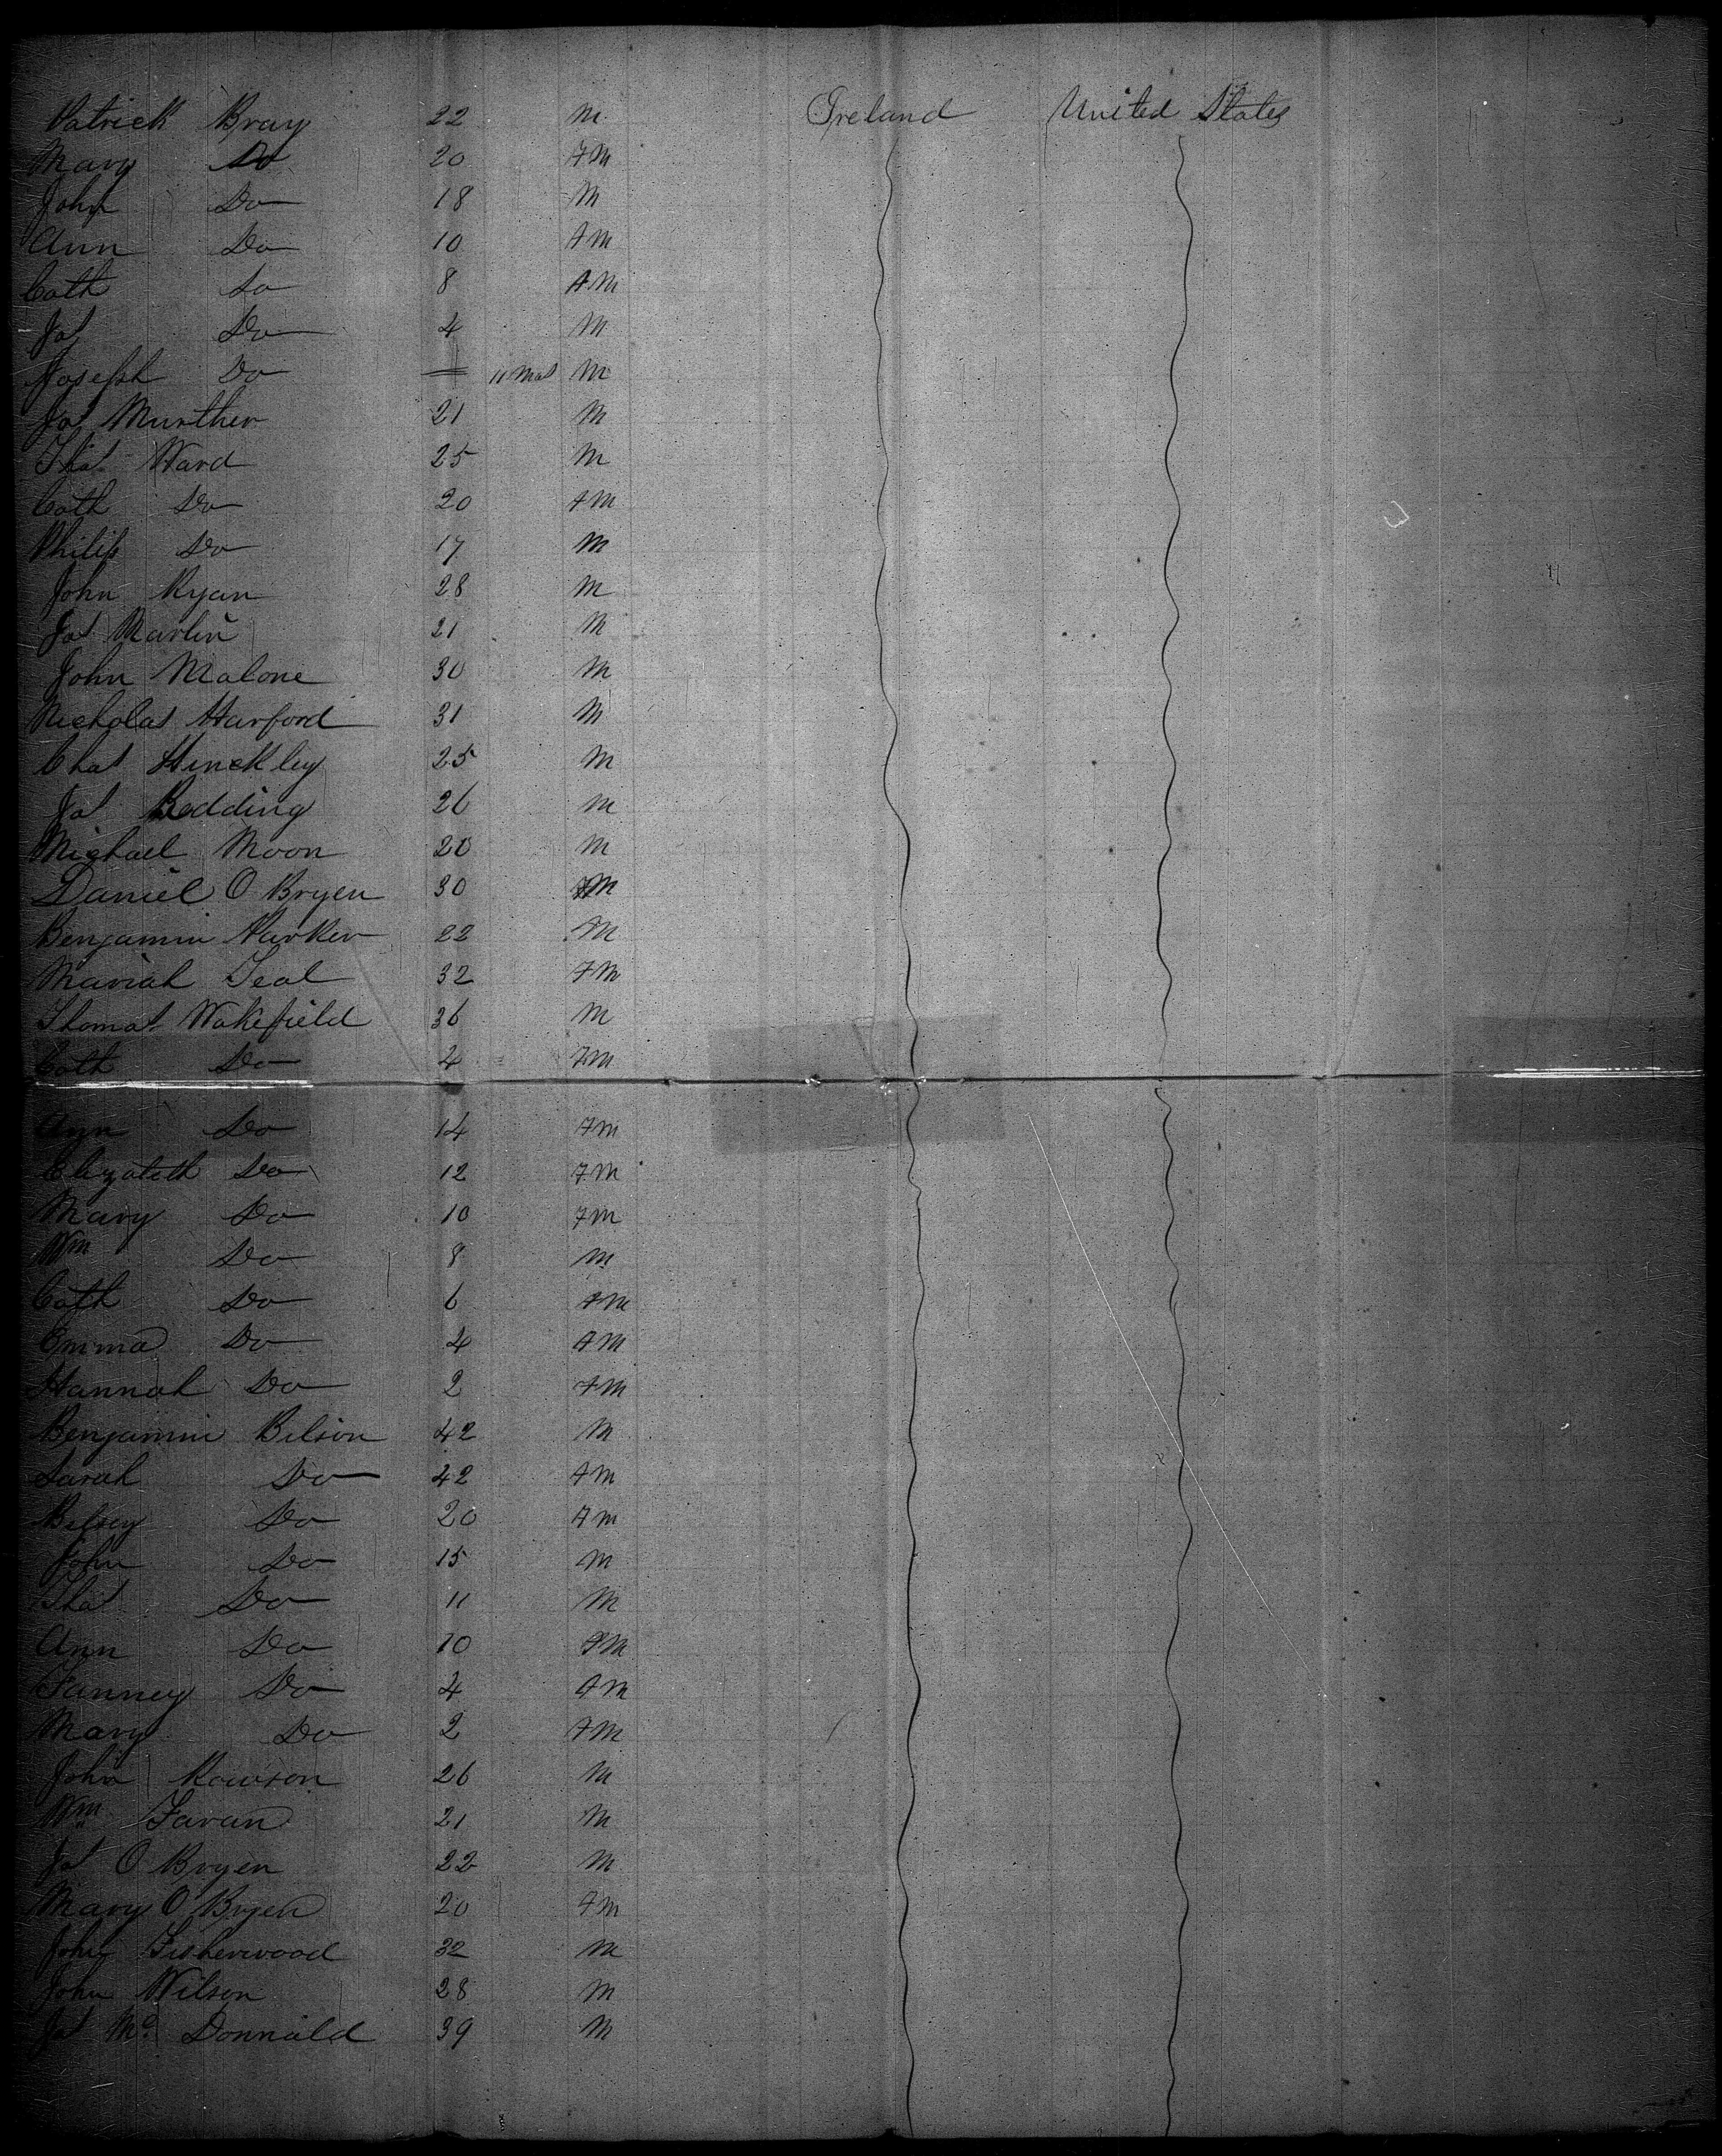 Patrick Bray 22 M Ireland United States
Mary Do 20 FM
John Do 18 M
Ann Do 10 FM
Cath Do 8 FM
Jas Do 4 M
Joseph Do 11 Mos M
Jas Murther 21 M
Thos Ward 25 M
Cath Do 20 FM
Philip Do 17 M
John Ryan 28 M
Jas Martin 21 M
John Malone 30 M
Nicholas Harford 31 M
Chas Hinckley 25 M
Jas Redding 26 M
Michael Moon 20 M
Daniel O Bryen 30 M
Benjamin Parker 22 M
Mariah Teal 32 FM
Thomas Wakefield 36 M
Cath Do 4 FM
Ann Do 14 FM
Elizabeth Do 12 FM
Mary Do 10 FM
Wm Do 8 M
Cath Do 6 FM
Emma Do 4 FM
Hannah Do 2 FM
Benjamin Bilson 42 M
Sarah Do 42 FM
Betsey Do 20 FM
John Do 15 M
Thos Do 11 M
Ann Do 10 FM
Fanney Do 4 FM
Mary Do 2 FM
John Rowson 26 M
Wm Favan 21 M
Jas O Bryen 22 M
Mary O Bryen 20 FM
John Fisherwood 32 M
John Wilson 28 M
Jas Mc Donnald 39 M